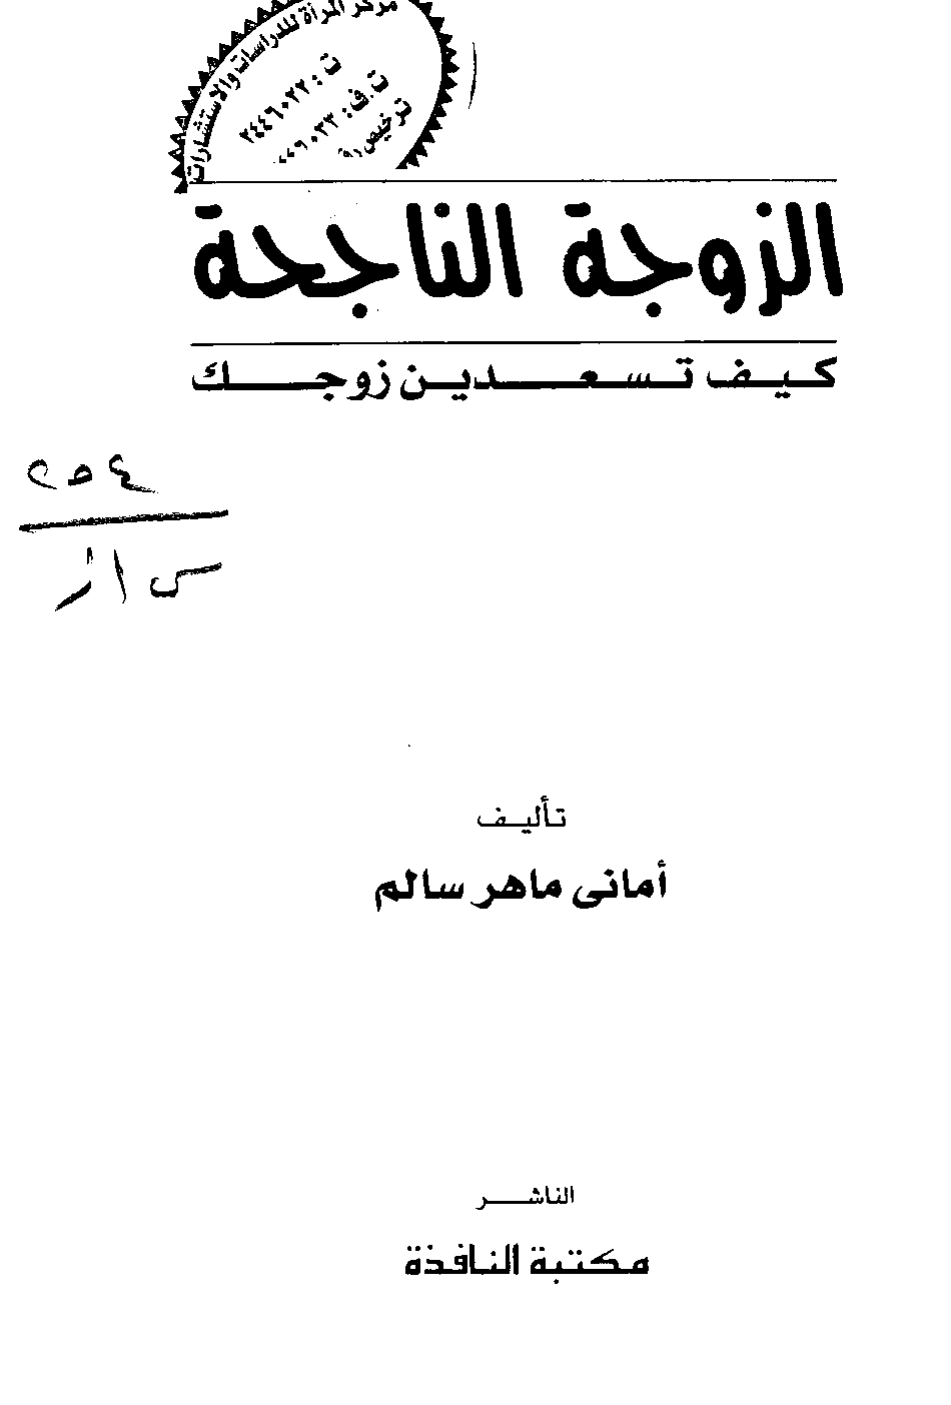 مركز المرأة للدراسات والاستشارات
ت : ٢٤٤٦٠٢٢
ت.ف:
ترخيص
الزوجة الناجحة
كيف تسعدين زوجك
س ا ر
تأليف
أمانى ماهر سالم
الناشر
مكتبة النافذة